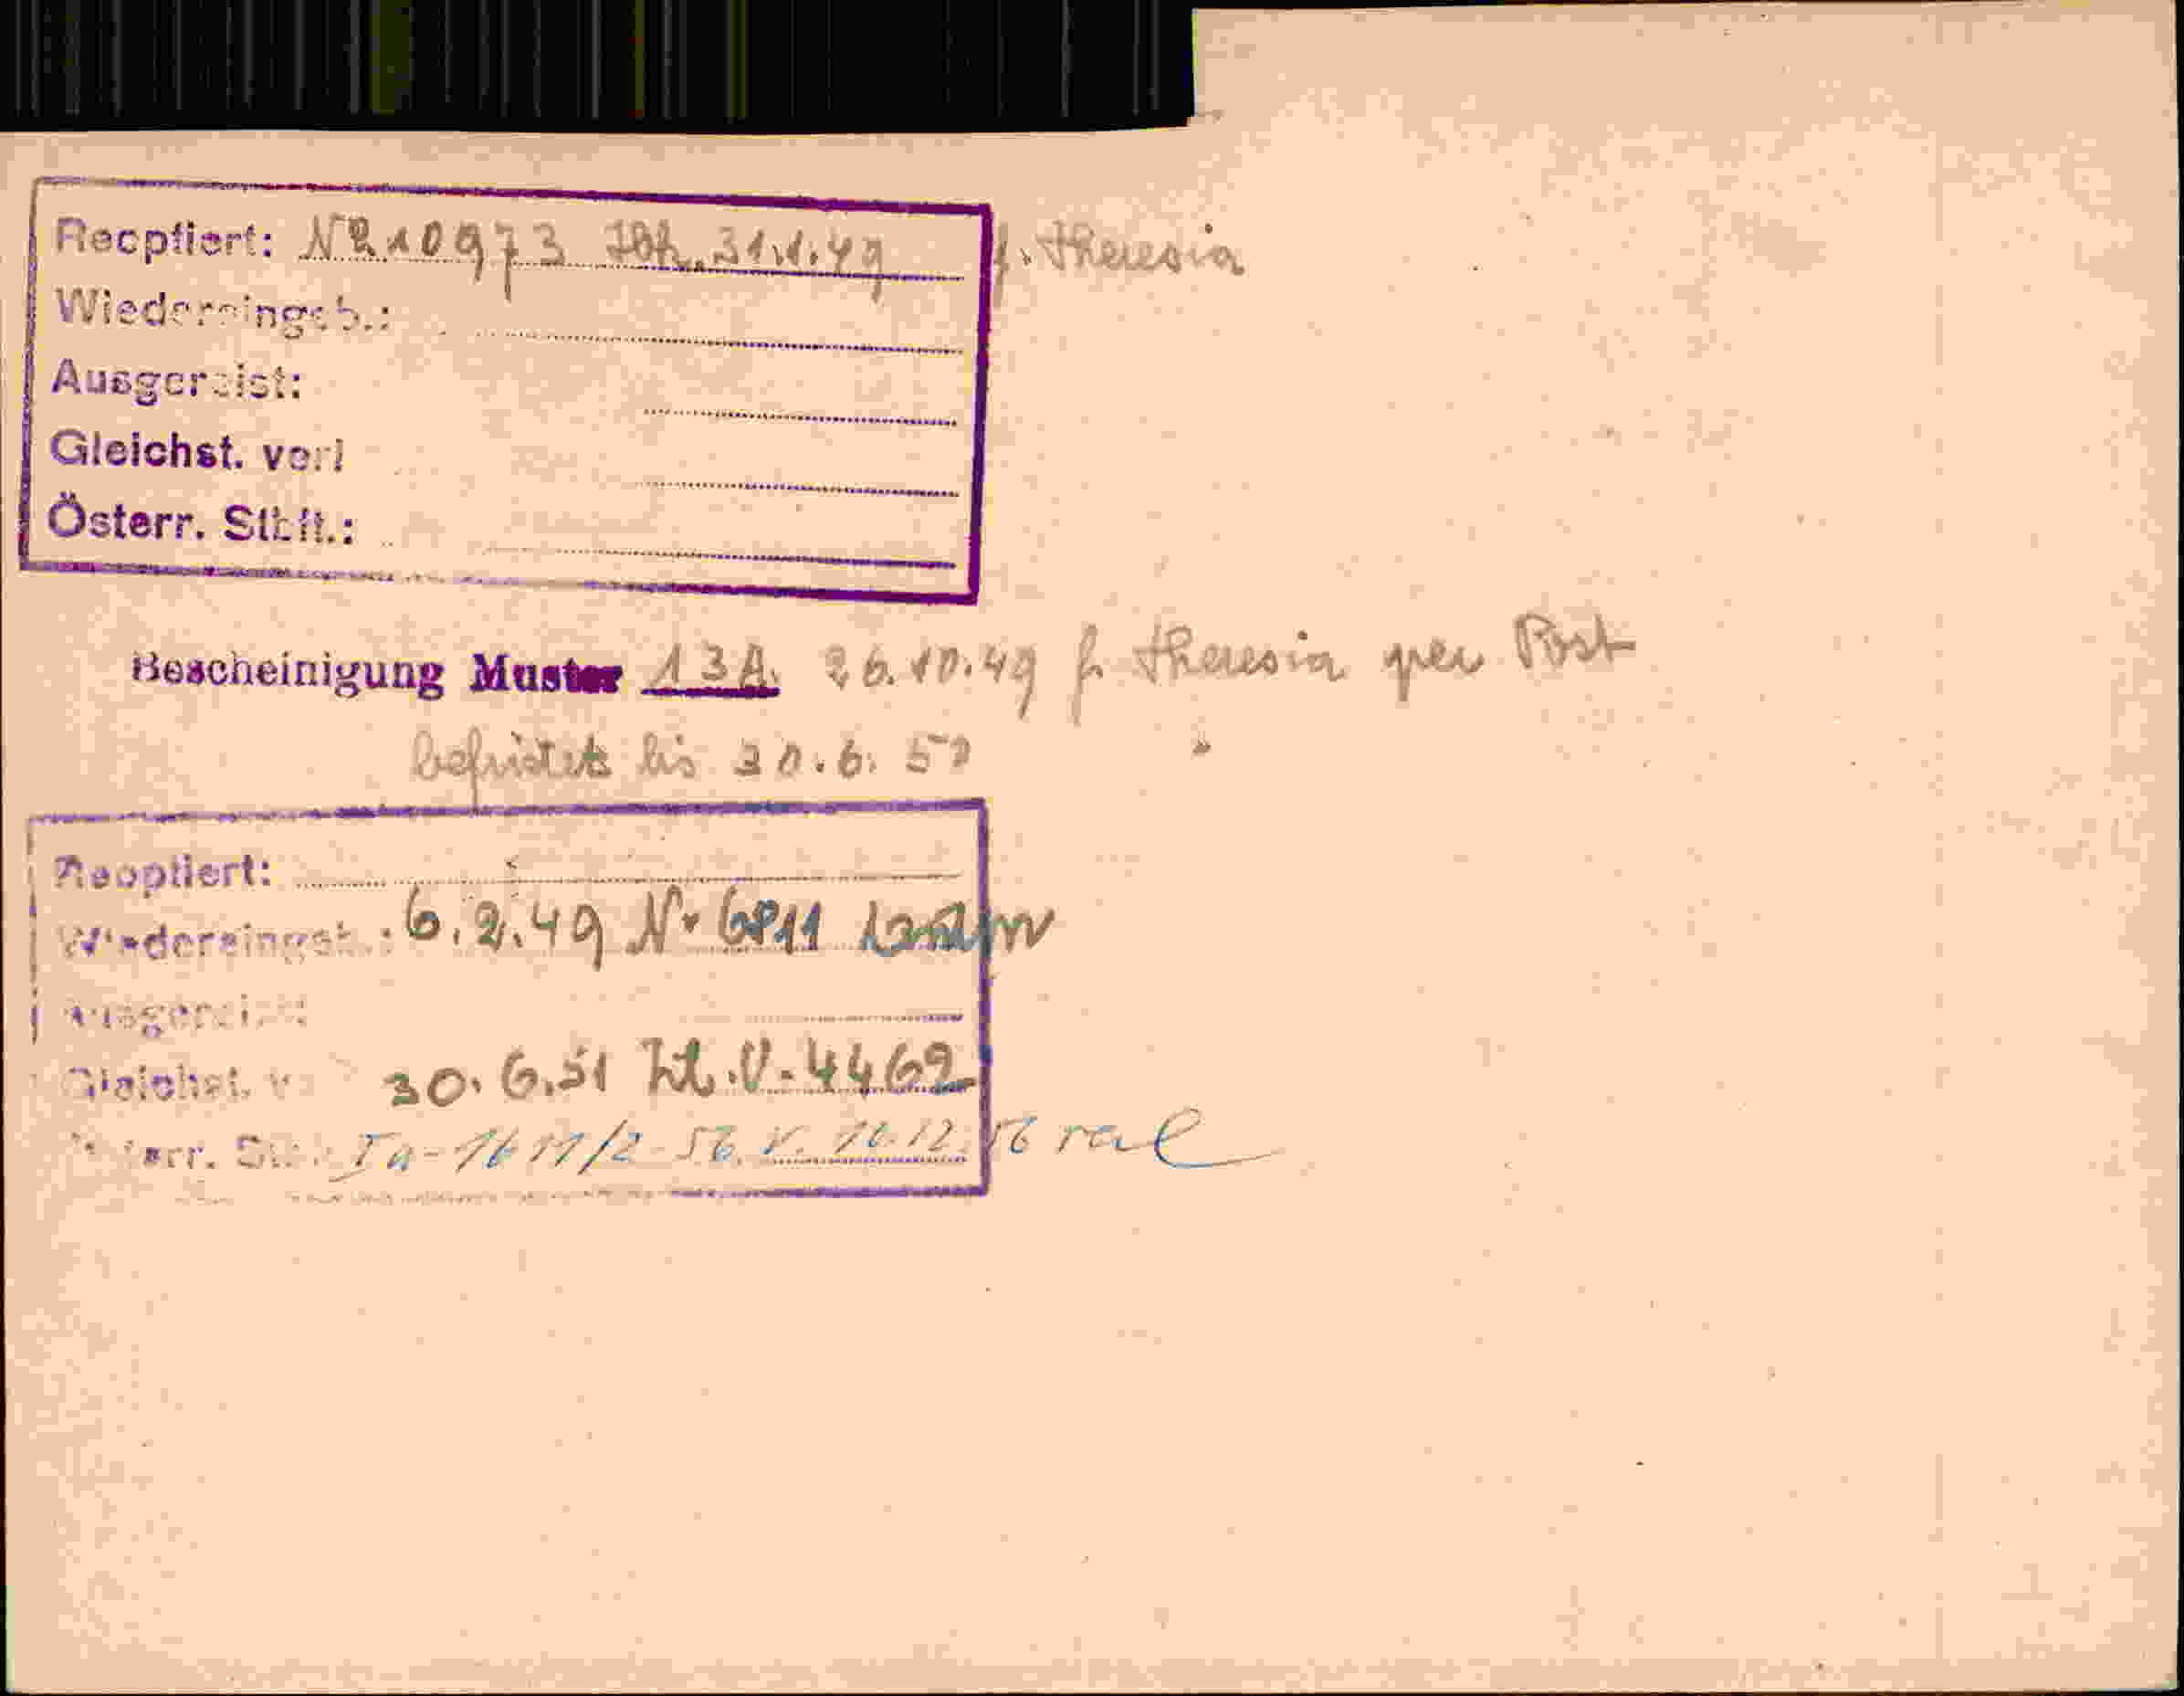 Reoptiert: NR 10973 Ibk. 31.1.49 f. Theresia
Wiedereingeb.:
Ausgereist:
Gleichst. vorl
Österr. Stbft.:
Bescheinigung Muster 13A. 26.10.49 f. Theresia per Post
befristet bis 30.6.50
Reoptiert:
Wiedereingeb.: 6.2.49 Nr 6811
Ausgereist:
Gleichst. v 30.6.51 Zl.V.4462
Österr. St Ia-1611/2-56 v. 12.56